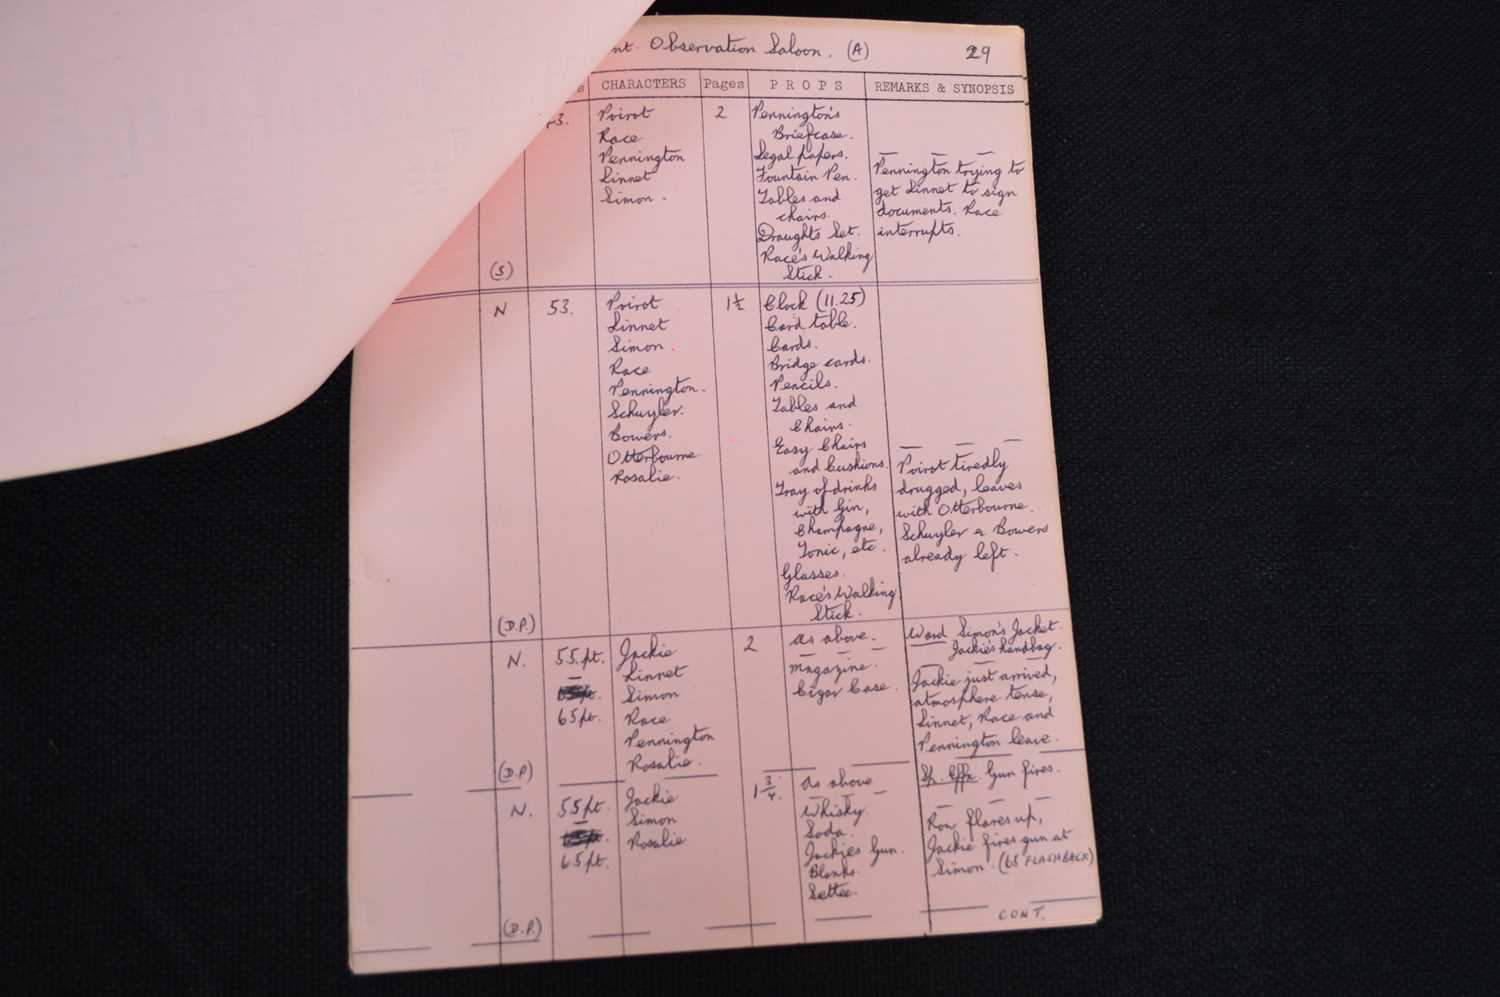 nt. Observation Saloon. (A) 29
s CHARACTERS Pages PROPS REMARKS & SYNOPSIS
3. Poirot 2 Pennington's
Race Briefcase.
Pennington Legal papers. Pennington trying to
Linnet Fountain Pen. get Linnet to sign
Simon. Tables and documents. Race
chairs. interrupts.
Draughts Set.
Race's Walking
(S) Stick.
N 53. Poirot 1½ Clock (11.25)
Linnet Card table.
Simon. Cards.
Race Bridge cards.
Pennington. Pencils.
Schuyler. Tables and
Bowers. Chairs.
Otterbourne Easy Chairs
Rosalie. and Cushions. Poirot tiredly
Tray of drinks drugged, leaves
with Gin, with Otterbourne.
Champagne, Schuyler & Bowers
Tonic, etc. already left.
Glasses.
Race's Walking
(D.P.) Stick.
N. 55.pt. Jackie 2 As above. Ward Simon's Jacket.
Linnet Magazine. Jackie's handbag.
Simon Cigar Case. Jackie just arrived,
65pt. Race atmosphere tense,
Pennington Linnet, Race and
(D.P) Rosalie. Pennington leave.
N. 55pt. Jackie 1¾. As above Sp. Effx. Gun fires.
Simon Whisky.
Rosalie Soda. Row flares up,
65pt. Jackies Gun. Jackie fires gun at
Blanks. Simon. (65 FLASHBACK)
Settee.
(D.P.) CONT.